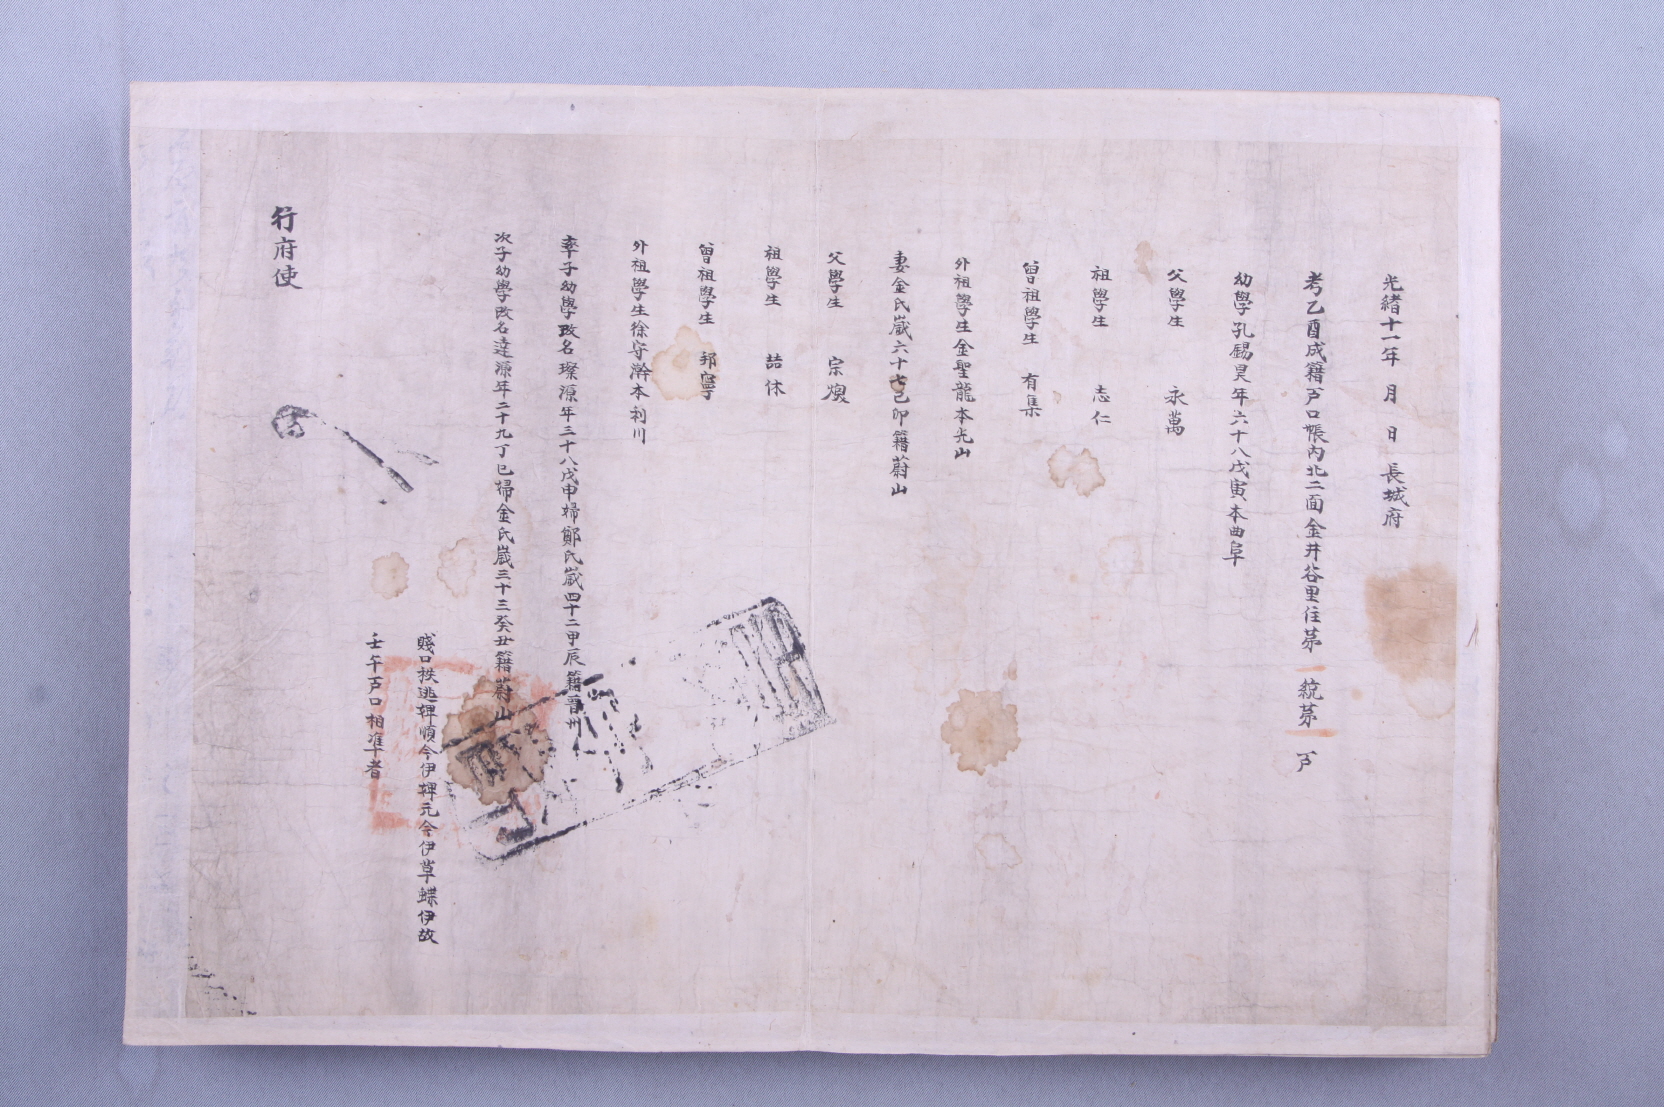 光緖十一年 月 日 長城府
考乙酉成籍戶口帳內北二面金井谷里住苐一統苐一戶
幼學孔錫昊年六十八戊寅本曲阜
父學生 永萬
祖學生 志仁
曾祖學生 有集
外祖學生金聖龍本光山
妻金氏歲六十七己卯籍蔚山
父學生 宗煥
祖學生 喆休
曾祖學生 邦寧
外祖學生徐守瀚本利川
率子幼學改名璨源年三十八戊申婦鄭氏歲四十二甲辰籍晋州
次子幼學改名達源年二十九丁巳婦金氏歲三十三癸丑籍蔚山
賤口秩逃婢順今伊婢元今伊草蝶伊故
壬午戶口相准者
行府使